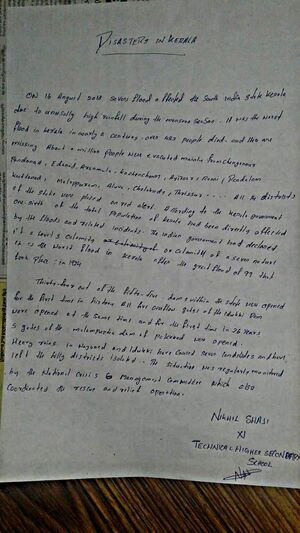 DISASTERS IN KERALA
ON 16 August 2018 severe flood affected the south india state Kerala
due to unusually high rainfall during the monsoon season. It was the worst
flood in kerala in nearly a century. over people died and are
missing. About a million people were evacuated mainly from chengannur
Pandanad, Edanad, Aranmula, Kozhencherry, Ayiroor, Ranni, Pandalam
Kuttanad, Malappuram, Aluva, Chalakudy, Thrissur .... All the districts
of the state were placed on red alert. According to the kerala government
one-sixth of the total population of kerala had been directly affected
by the floods and related incidents. The indian government had declared
it a level 3 calamity or calamity of a severe nature
It is the worst flood in kerala after the great flood of 99 that
took place in 1924
Thirty-five out of the fifty-five dams within the state were opened
for the first time in history. All five overflow gates of the Idukki Dam
were opened at the same time and for the first time in 26 years
5 gates of the malampuzha dam of palakkad was opened.
Heavy rains in Wayanad and Idukki have caused severe landslides and have
left the hilly districts isolated. The situation was regularly monitored
by the National Crisis Management Committee which also
coordinated the rescue and relief operation.
NIKHIL SHAJI
XI
TECHNICAL HIGHER SECONDARY
SCHOOL